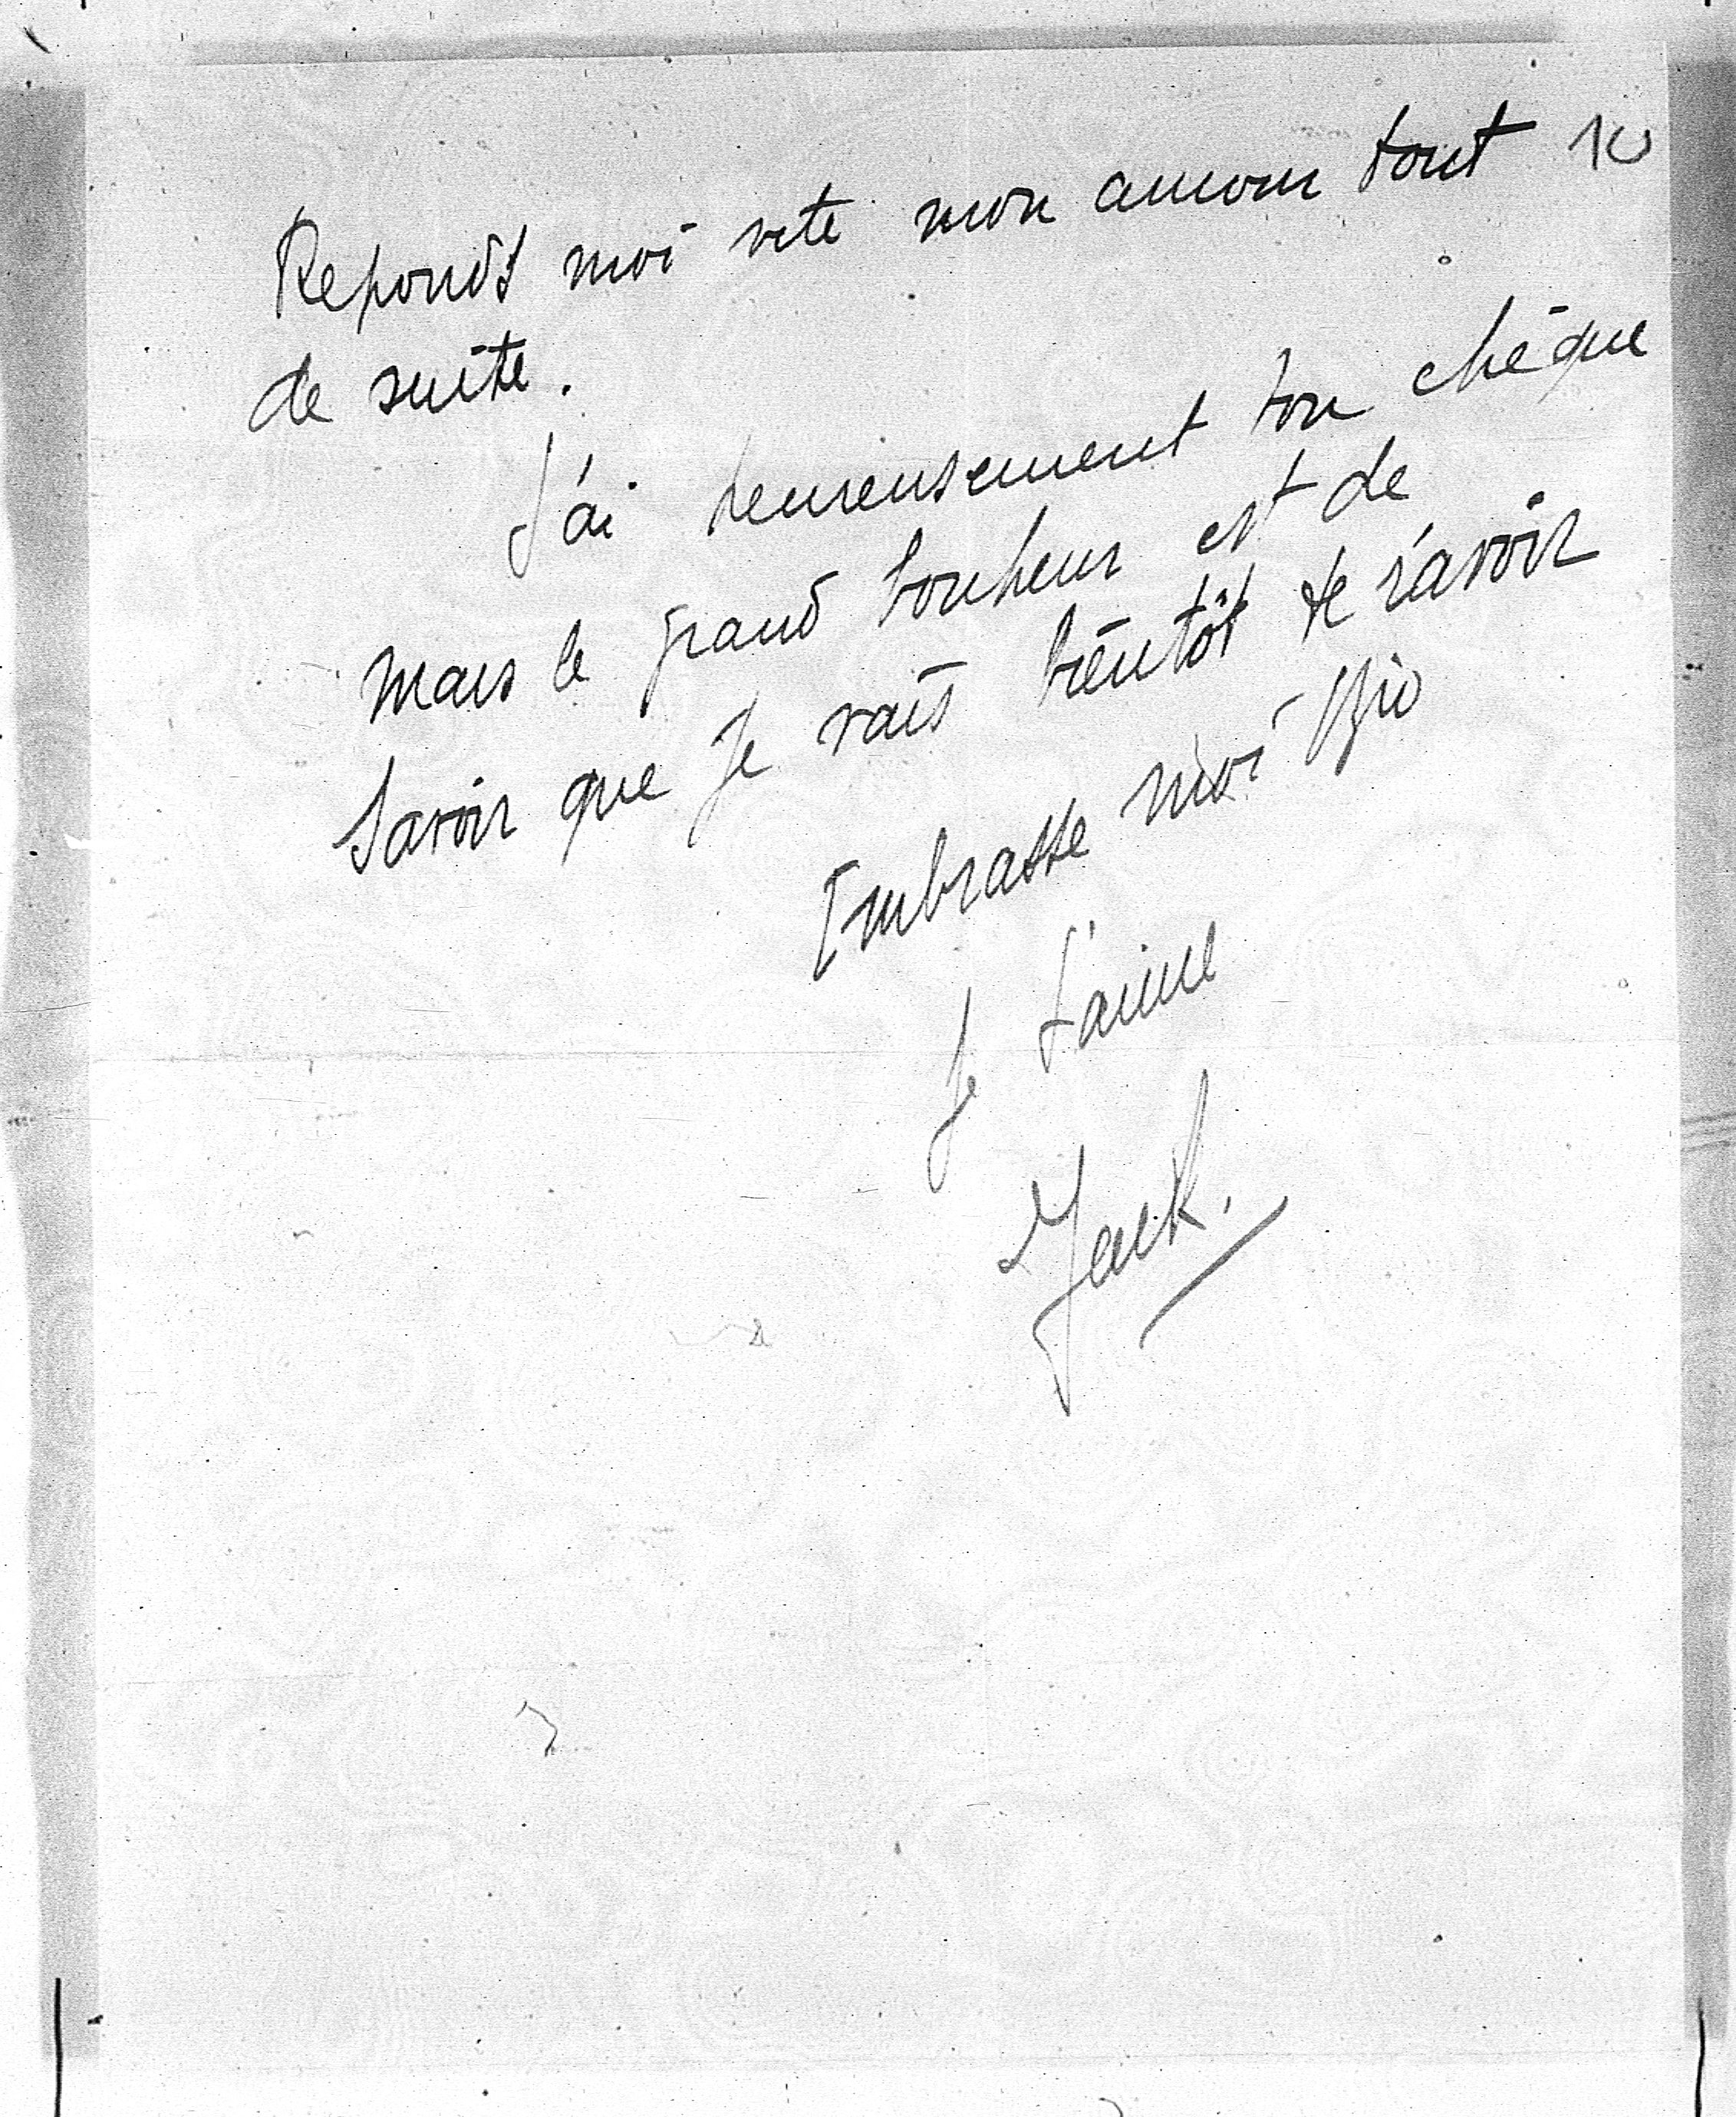 10
Reponds moi vite mon amour tout
de suite.
J'ai heureusement ton chèque
mais le grand bonheur est de
savoir que je vais bientôt te r'avoir
Embrasse moi
Je t'aime
Jack.